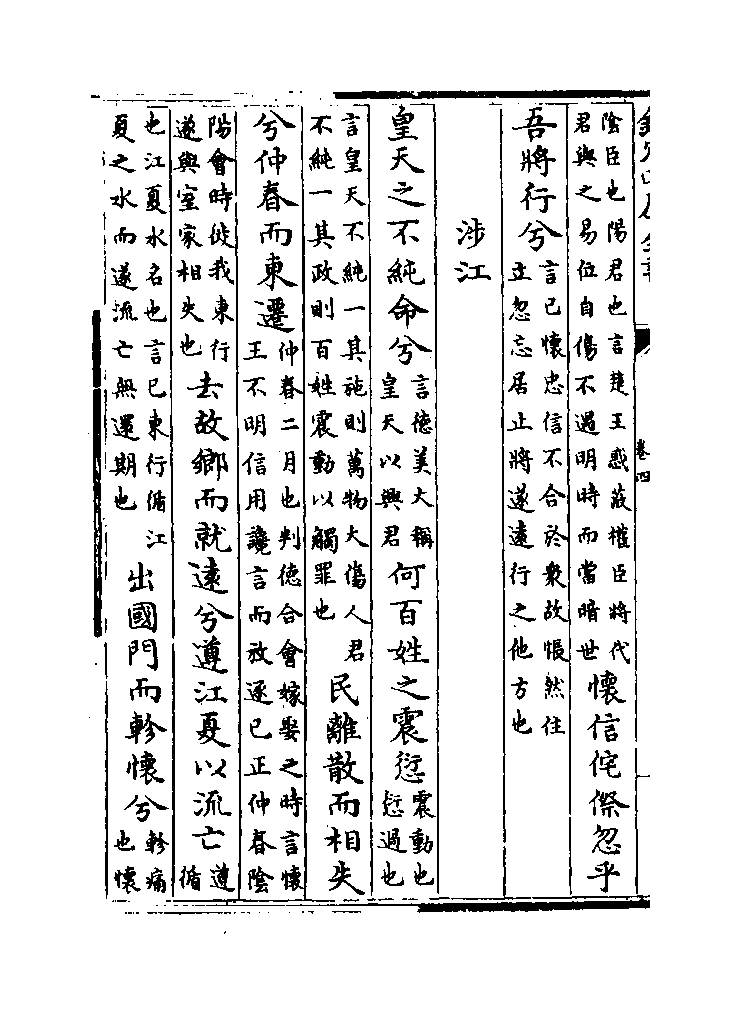 欽定四庫全書
卷四
隂臣也陽君也言楚王惑蔽權臣將代
君與之易位自傷不遇明時而當暗世
懷信侘傺忽乎
吾將行兮
言已懷忠信不合於衆故悵然住
立忽忘居止將遂遠行之他方也
涉江
皇天之不純命兮
言德美大稱
皇天以興君
何百姓之震愆
震動也
愆過也
言皇天不純一其施則萬物大傷人君
不純一其政則百姓震動以觸罪也
民離散而相失
兮仲春而東遷
仲春二月也判德合會嫁娶之時言懷
王不明信用讒言而放逐已正仲春隂
陽會時徙我東行
遂與室家相失也
去故鄉而就遠兮遵江夏以流亡
遵
循
也江夏水名也言已東行循江
夏之水而遂流亡無還期也
出國門而軫懷兮
軫痛
也懷